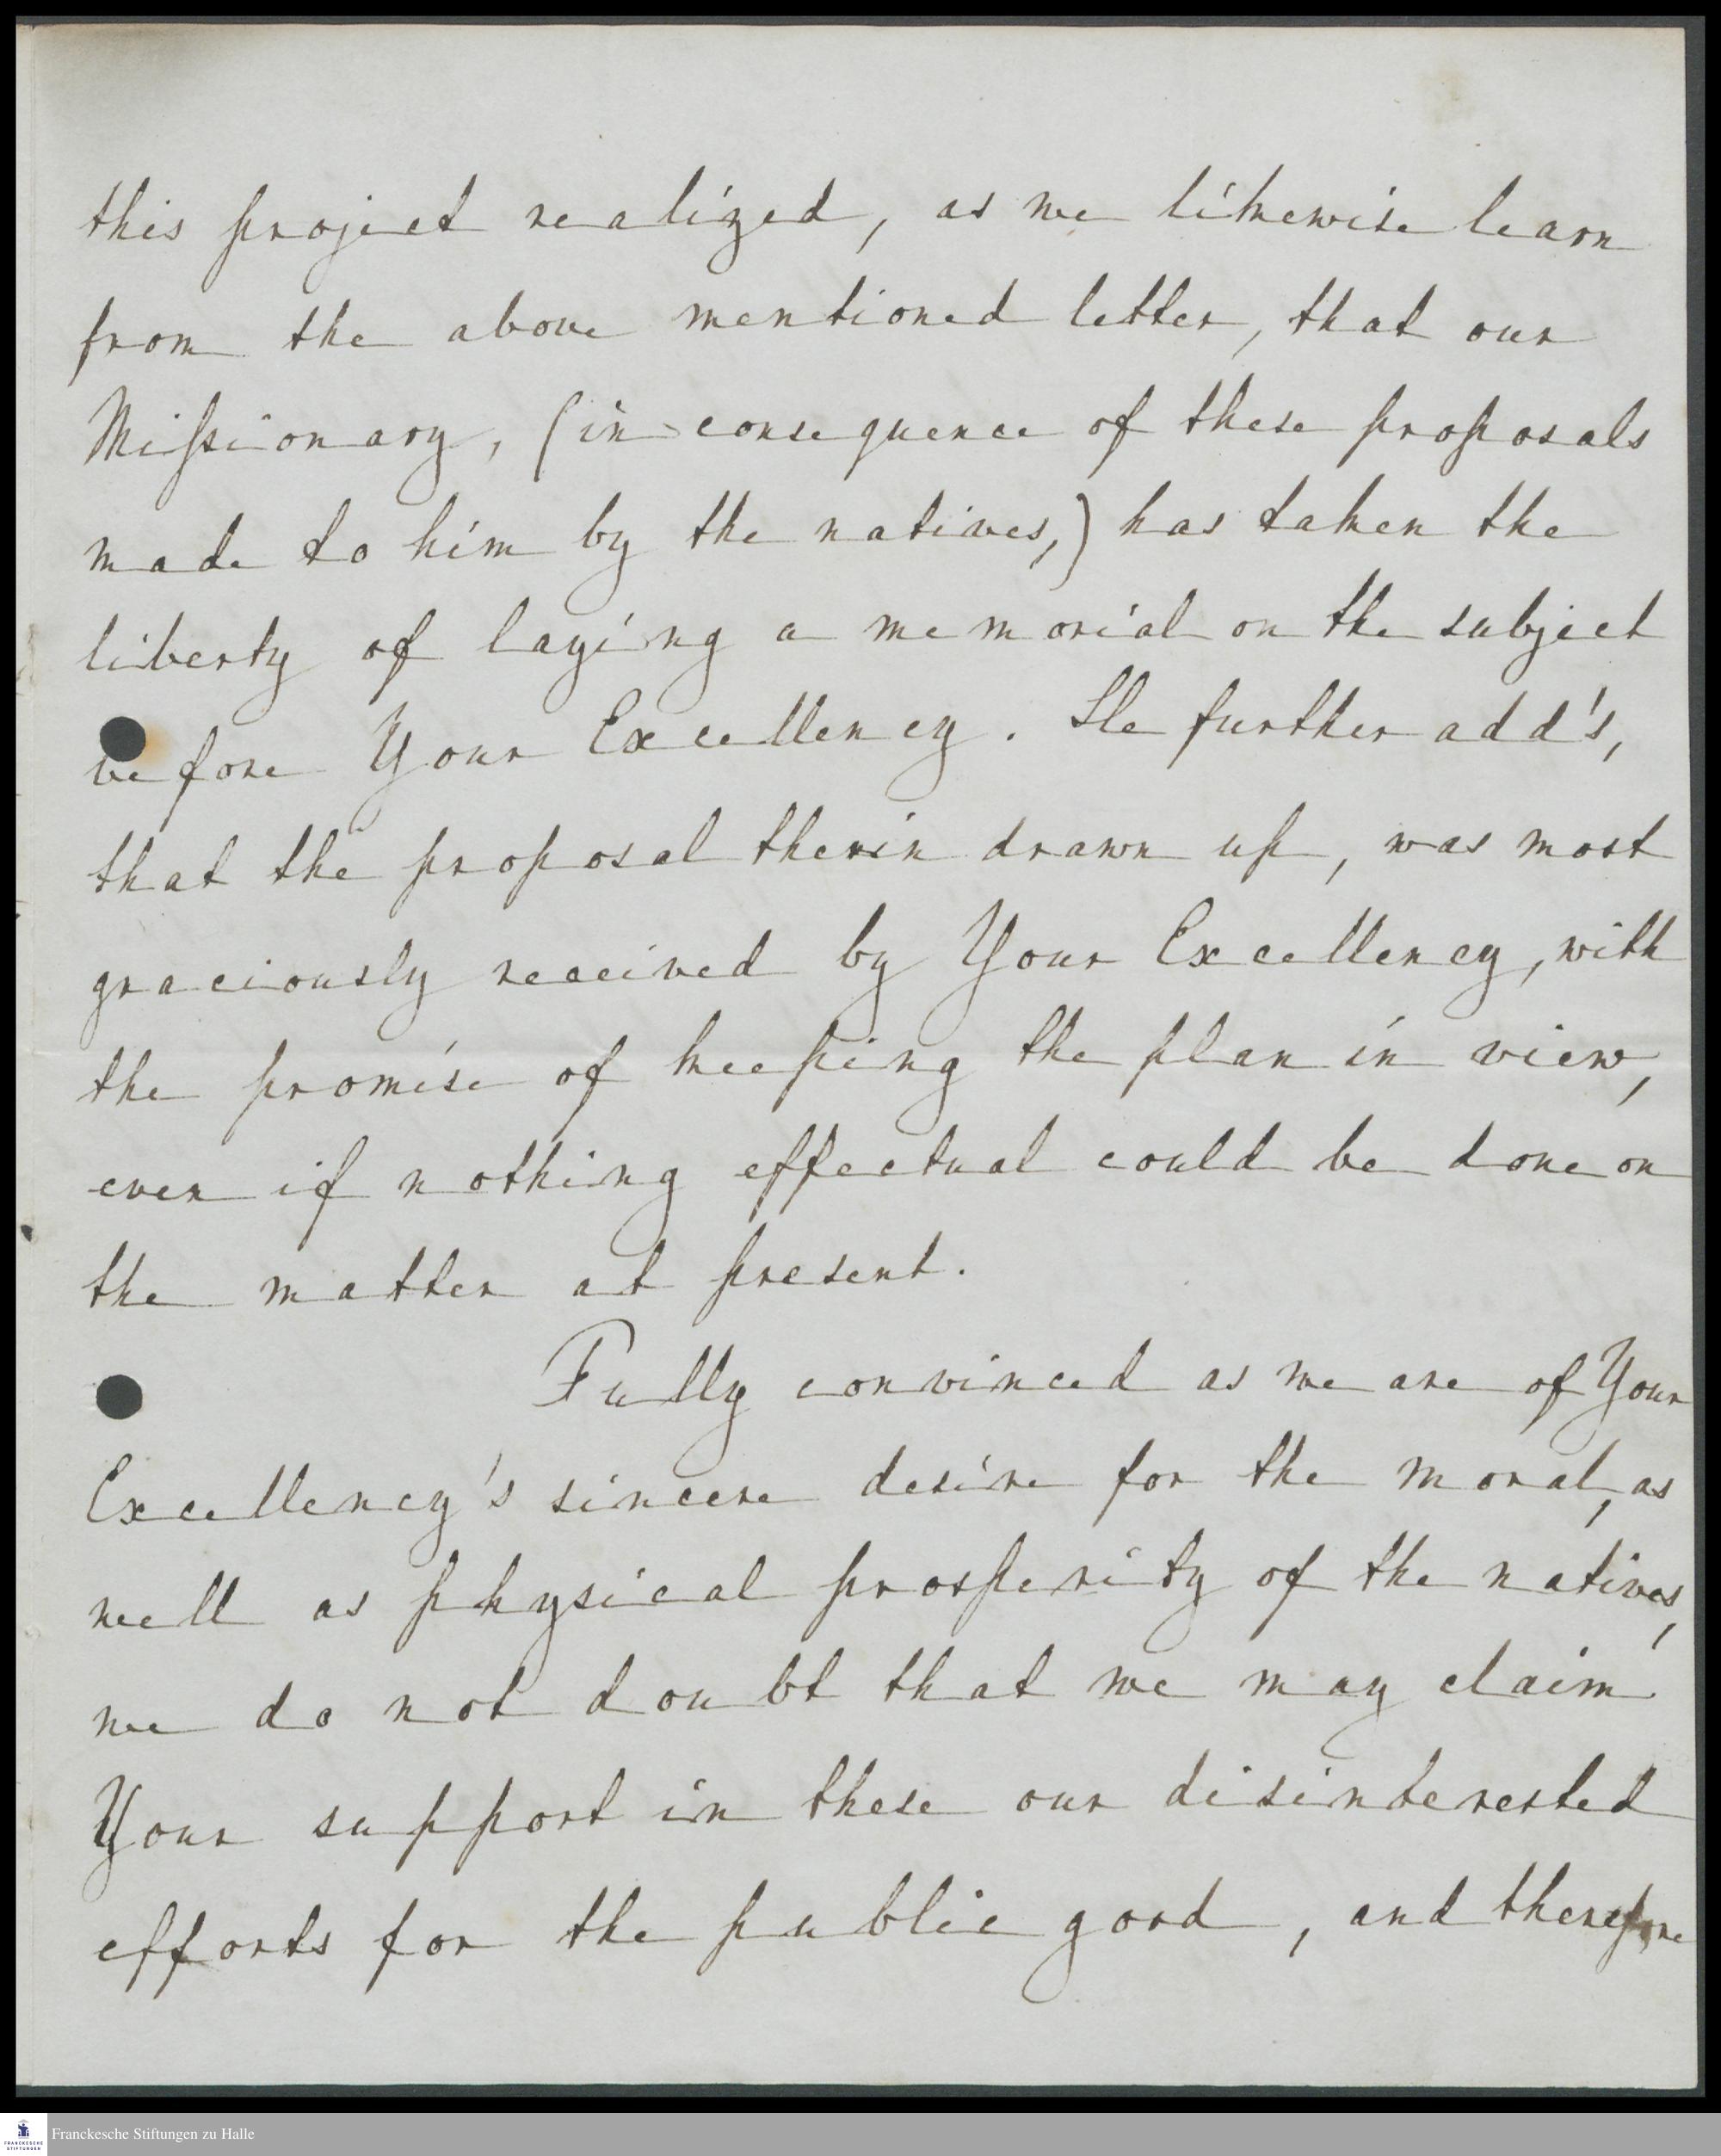 this project realized, as we likewise learn
from the above mentioned letter, that our
Missionary, (in consequence of these proposals
made to him by the natives,) has taken the
liberty of laying a memorial on the subject
before Your Excellency. He further add's,
that the proposal therin drawn up, was most
graciously received by Your Excellency, with
the promise of keeping the plan in view,
even if nothing effectual could be done on
the matter at present.
Fully convinced as we are of Your
Excellency's sincere desire for the moral, as
well as physical prosperity of the natives,
we do not doubt that we may claim
Your support in these our disinterested
efforts for the public good, and therefore
FRANCKESCHE
STIFTUNGEN
Franckesche Stiftungen zu Halle